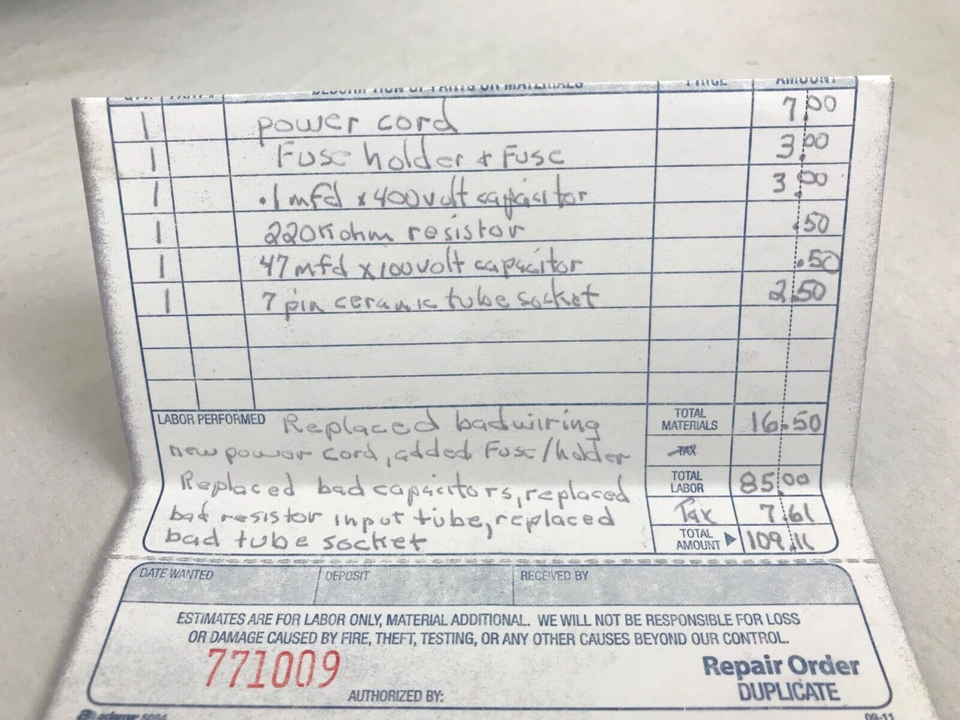 QTY. PART # DESCRIPTION OF PARTS OR MATERIALS PRICE AMOUNT
1 power cord 7.00
1 Fuse holder & Fuse 3.00
1 .1mfd x 400volt capacitor 3.00
1 220K ohm resistor .50
1 47mfd x100volt capacitor .50
1 7 pin ceramic tube socket 2.50
LABOR PERFORMED Replaced bad wiring
new power cord, added Fuse/holder
Replaced bad capacitors, replaced
bad resistor input tube, replaced
bad tube socket
TOTAL MATERIALS 16.50
TAX
TOTAL LABOR 85.00
Tax 7.61
TOTAL AMOUNT ▶ 109.11
DATE WANTED DEPOSIT RECEIVED BY
ESTIMATES ARE FOR LABOR ONLY, MATERIAL ADDITIONAL. WE WILL NOT BE RESPONSIBLE FOR LOSS
OR DAMAGE CAUSED BY FIRE, THEFT, TESTING, OR ANY OTHER CAUSES BEYOND OUR CONTROL.
771009
AUTHORIZED BY:
Repair Order
DUPLICATE
adams
09-11